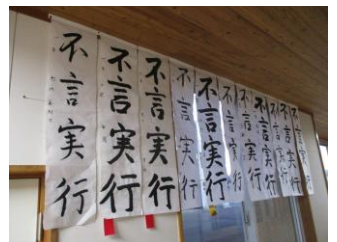 不言実行
不言実行
不言実行
不言実行
不言実行
不言実行
不言実行
不言実行
不言実行
不言実行